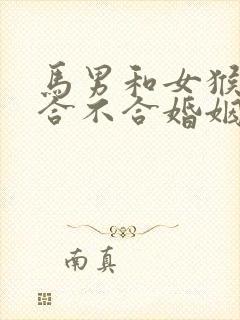 馬男和女猴
合不合婚姻
南真